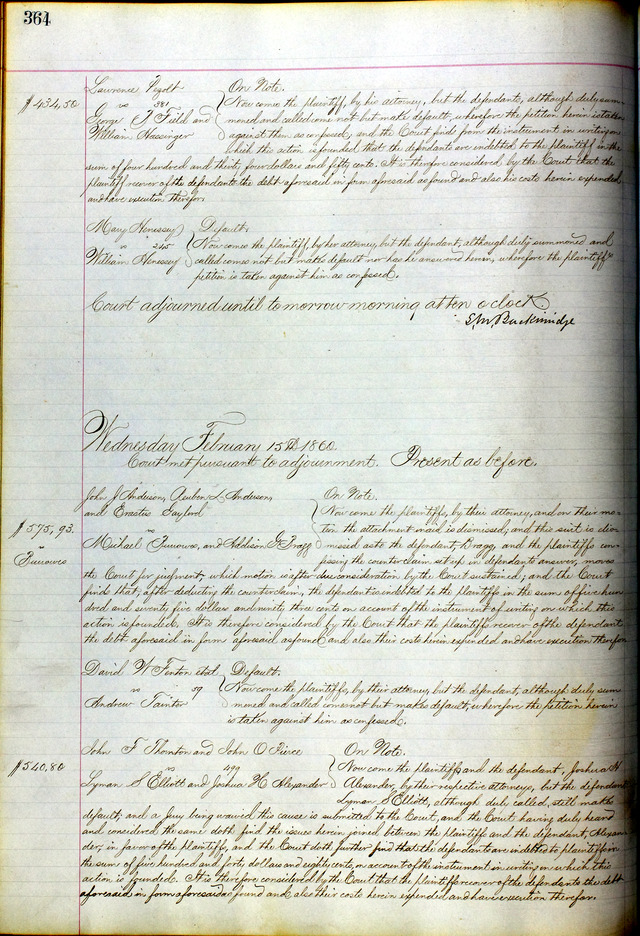 364
Lawrence Pezolt } On Note.
$434,50 vs 381 Now comes the plaintiff, by his attorney, but the defendants, although duly sum-
George T Field and moned and called come not but make default, wherefore the petition herein is taken
William Hassinger against them as confessed, and the Court finds from the instrument in writing on
which the action is founded that the defendants are indebted to the plaintiff in the
sum of four hundred and thirty four dollars and fifty cents. It is therefore considered by the Court that the
plaintiff recover of the defendants the debt aforesaid in form aforesaid as found and also his costs herein expended
and have execution therefor.
Mary Henessey } Default.
vs 245 Now comes the plaintiff, by her attorney, but the defendant, although duly summoned and
William Henessey called comes not but makes default nor has he answered herein, wherefore the plaintiffs
petition is taken against him as confessed.
Court adjourned until to morrow morning at ten o'clock.
S.M. Breckinridge
Wednesday February 15th 1860.
Court met pursuant to adjournment. Present as before.
John J Anderson, Reuben L. Anderson, } On Note.
and Erastus Gaylord Now come the plaintiffs, by their attorney, and on their mo-
$575,93. vs tion the attachment made is dismissed, and this suit is dis-
vs Burrowes Michael Burrowes, and Addison G. Bragg missed as to the defendant, Bragg, and the plaintiffs con-
fessing the counterclaim set up in defendants answer, moves
the Court for judgment, which motion is after due consideration by the Court sustained; and the Court
finds that, after deducting the counterclaim, the defendant is indebted to the plaintiffs in the sum of five hun-
dred and seventy five dollars and ninety three cents on account of the instrument of writing on which this
action is founded. It is therefore considered by the Court that the plaintiffs recover of the defendant
the debt aforesaid in form aforesaid as found and also their costs herein expended and have execution therefor
David W Fenton et al } Default.
vs 59 Now come the plaintiffs, by their attorney, but the defendant, although duly sum
Andrew Taintor moned and called comes not but makes default, wherefore the petition herein
is taken against him as confessed.
John F Thornton and John O Pierce } On Note.
$540,80 vs 499 Now come the plaintiffs and the defendant, Joshua H
Lyman S Elliott and Joshua H Alexander Alexander, by their respective attorneys, but the defendant
Lyman S Elliott, although duly called, still makes
default; and a Jury being waived this cause is submitted to the Court, and the Court having duly heard
and considered the same doth find the issues herein joined between the plaintiffs and the defendant, Alexan
der, in favor of the plaintiffs, and the Court doth further find that the defendants are indebted to plaintiffs in
the sum of five hundred and forty dollars and eighty cents, on account of the instrument in writing on which this
action is founded. It is therefore considered by the Court that the plaintiffs recover of the defendants the debt
aforesaid in form aforesaid as found and also their costs herein expended and have execution therefor.